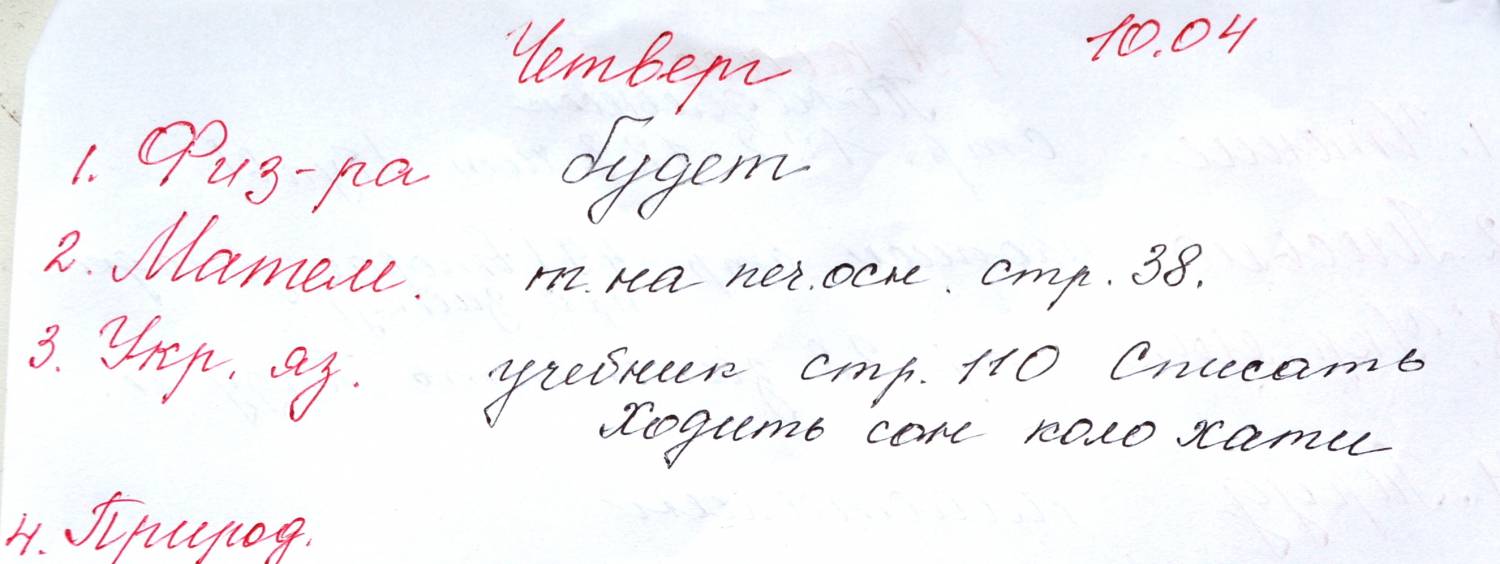 Четверг 10.04
1. Физ-ра будет
2. Матем. т. на печ. осн. стр. 38.
3. Укр. яз. учебник стр. 110 Списать
Ходить сон коло хати
4. Природ.